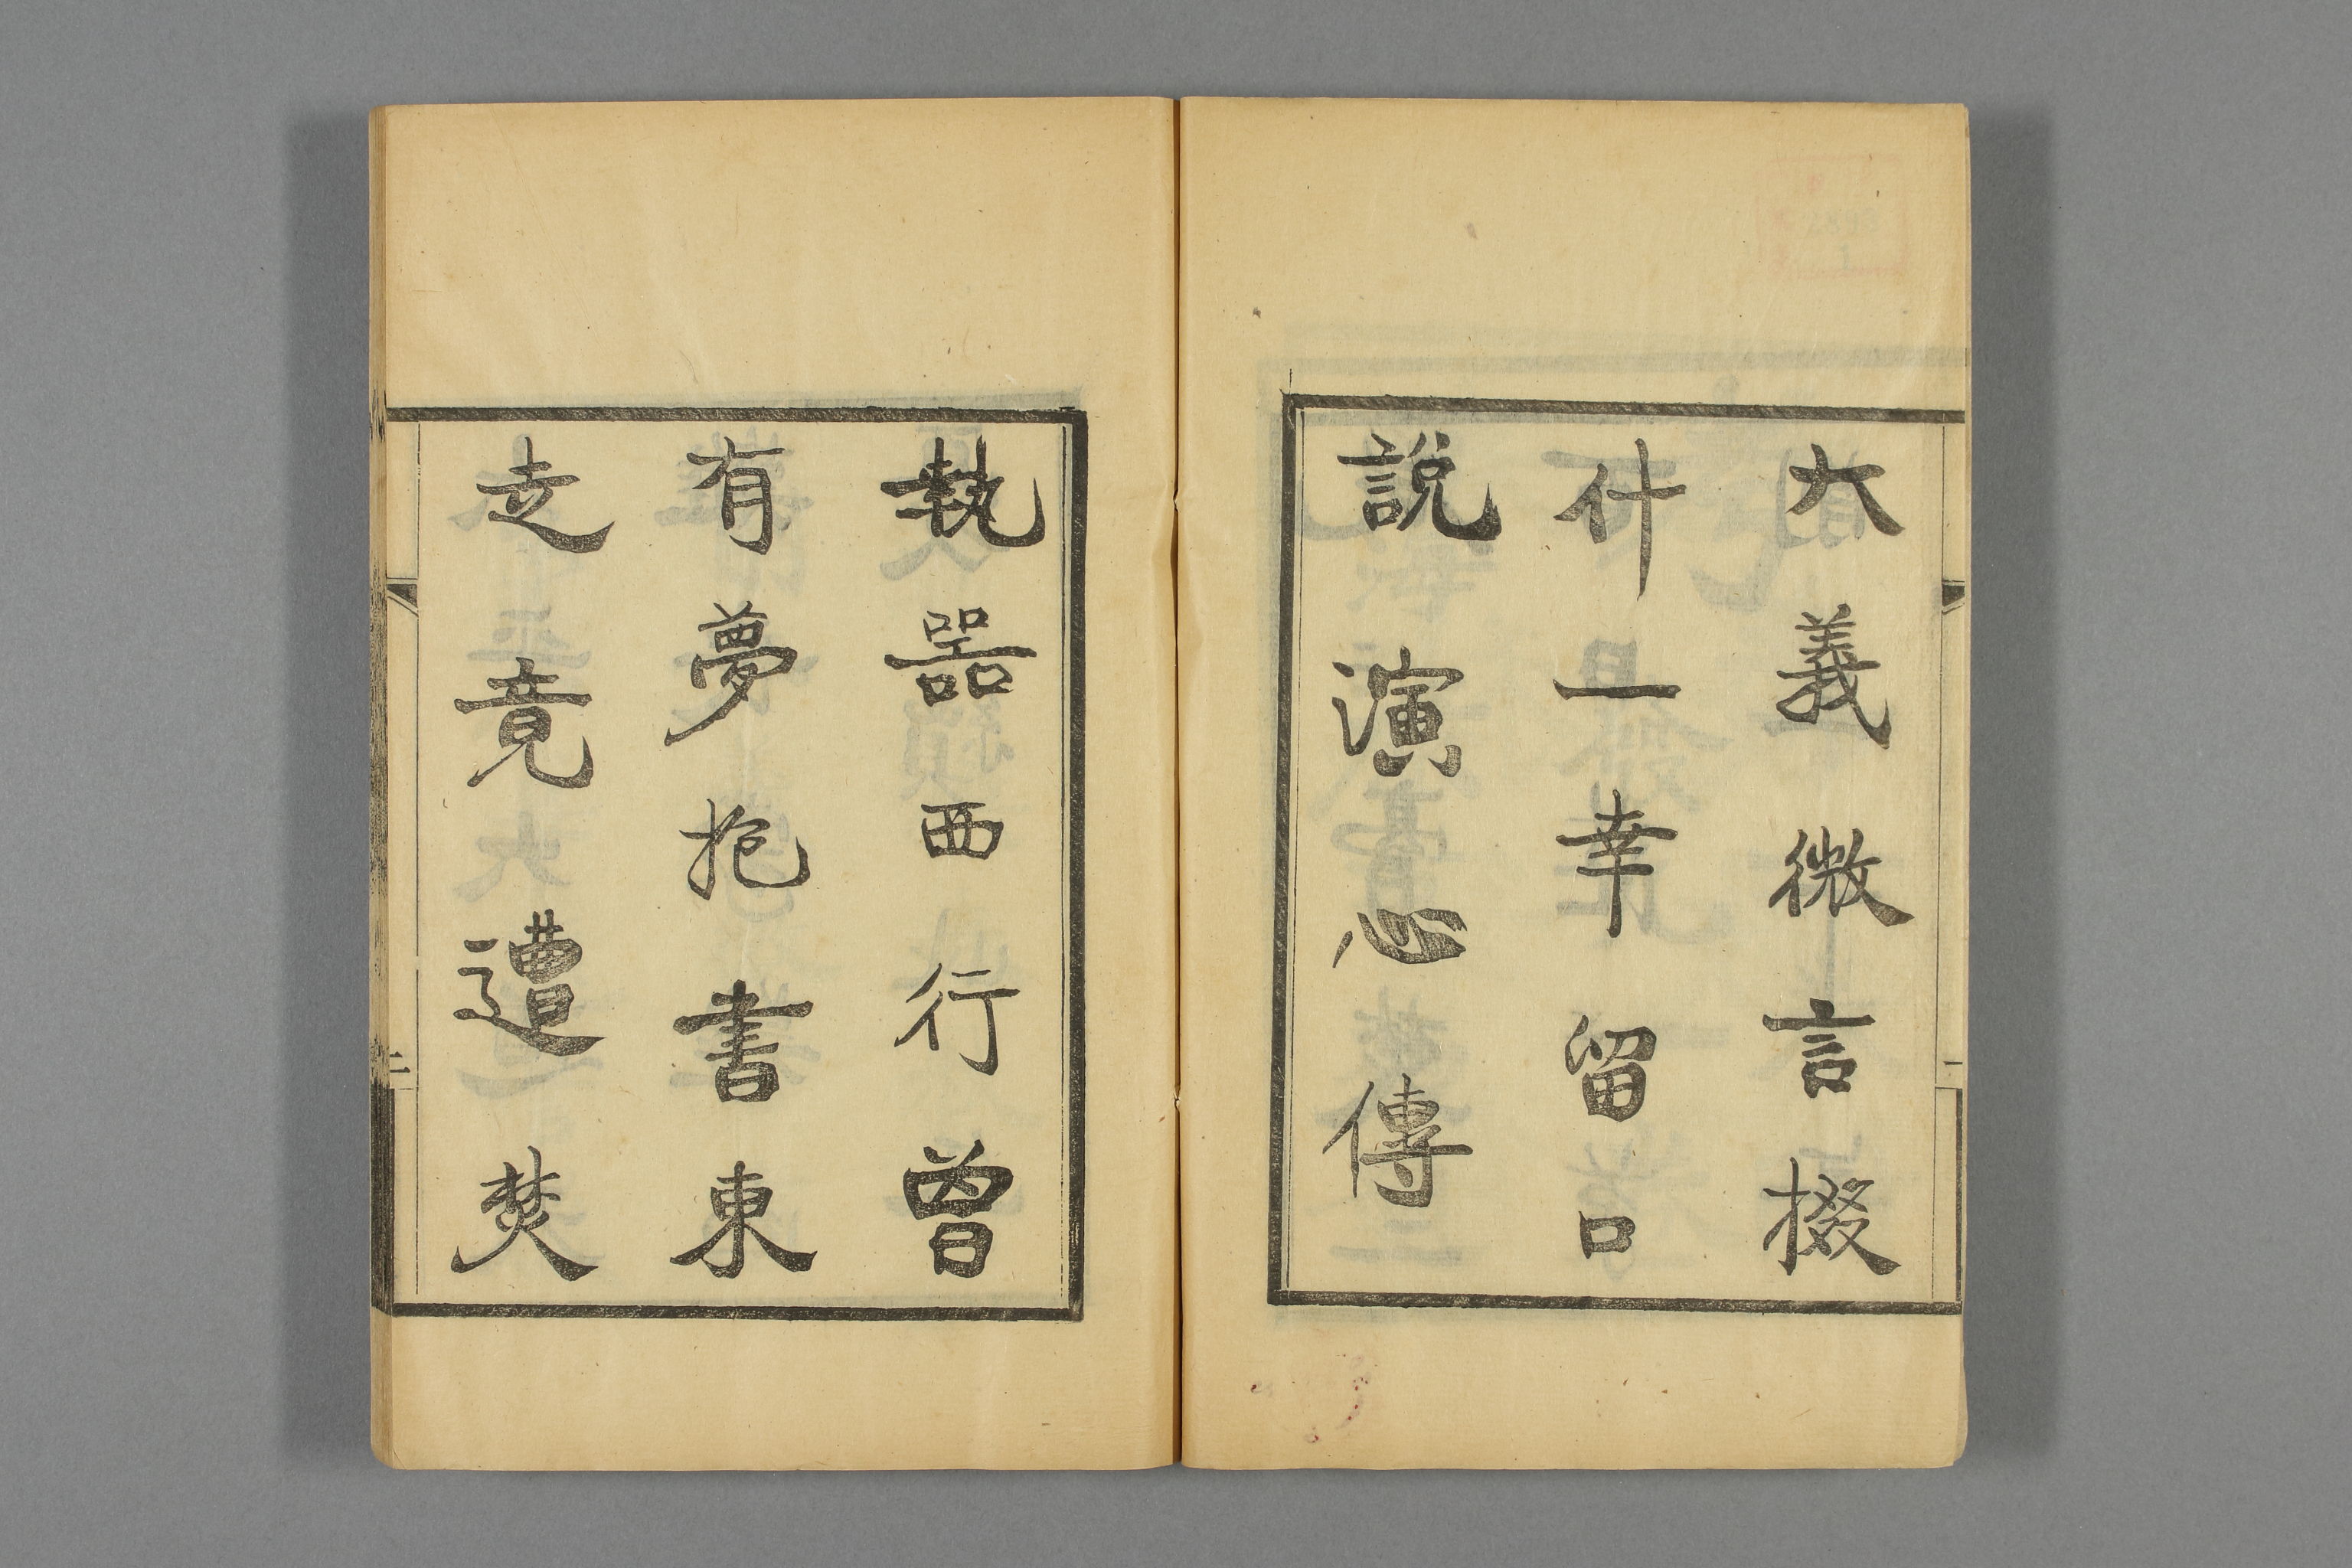 大義微言掇
什一幸留口
說演心傳
一
執器西行曾
有夢抱書東
走竟遭焚
二